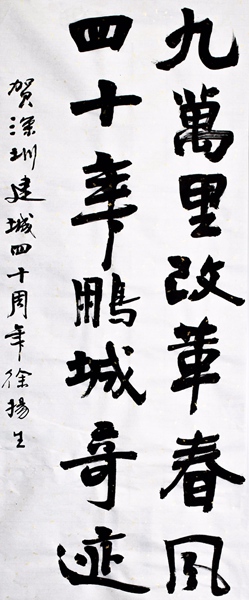 九萬里改革春风
四十年鹏城奇迹
贺深圳建城四十周年徐扬生